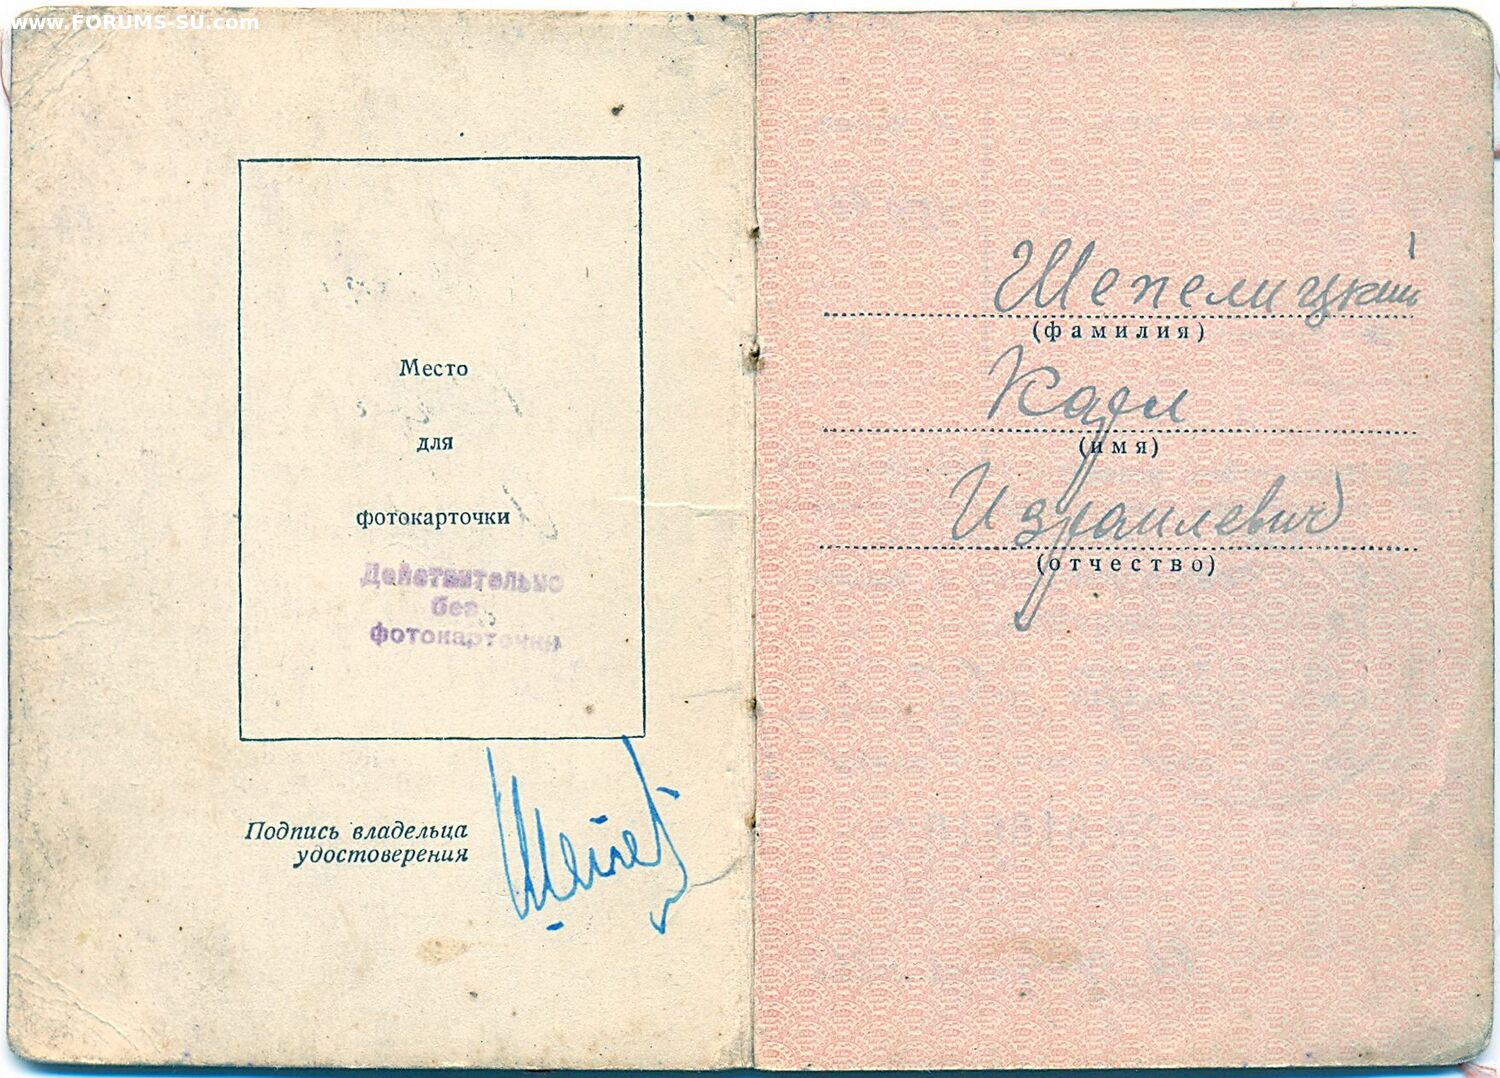 www.FORUMS-SU.com
Место
для
фотокарточки
Действительно
без
фотокарточки
Подпись владельца
удостоверения
Шепелицкий
(фамилия)
Карл
(имя)
Израилевич
(отчество)